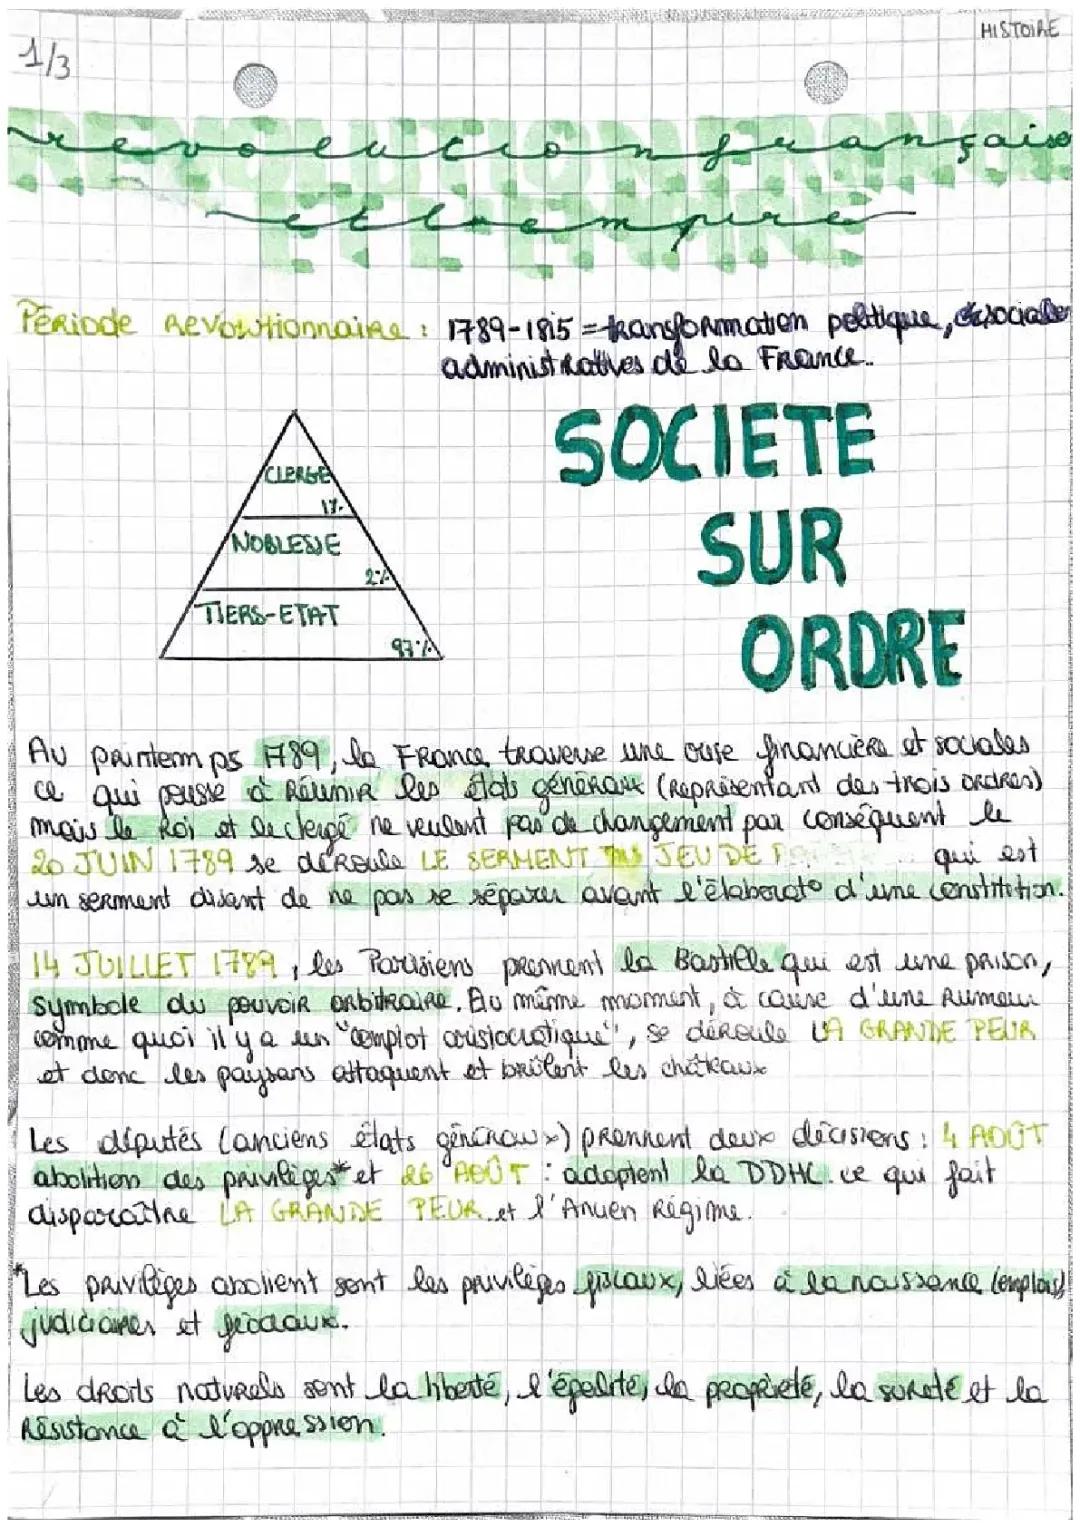 HISTOIRE
1/3
révolution française
et l'empire
Période Révolutionnaire : 1789-1815 = transformation politique, sociales
administratives de la France.
CLERGE
1%
NOBLESSE
2%
TIERS-ETAT
97%
SOCIETE
SUR
ORDRE
Au printemps 1789, la France traverse une crise financière et sociales
ce qui pousse à Réunir les états généraux (représentant des trois ordres)
mais le Roi et le clergé ne veulent pas de changement par conséquent le
20 JUIN 1789 se déroule LE SERMENT DU JEU DE qui est
un serment disant de ne pas se séparer avant l'élaborato d'une constitution.
14 JUILLET 1789, les Parisiens prennent la Bastille qui est une prison,
symbole du pouvoir arbitraire. Au même moment, à cause d'une Rumeur
comme quoi il y a un "complot aristocratique", se déroule LA GRANDE PEUR
et donc les paysans attaquent et brûlent les châteaux
Les députés (anciens états généraux) prennent deux décisions : 4 AOÛT
abolition des privilèges* et 26 AOÛT : adoptent la DDHC. ce qui fait
disparaître LA GRANDE PEUR et l'Ancien Régime.
*Les privilèges abolient sont les privilèges fiscaux, liées à la naissance (emplois),
judiciaires et féodaux.
Les droits naturels sont la liberté, l'égalité, la propriété, la sureté et la
Résistance à l'oppression.